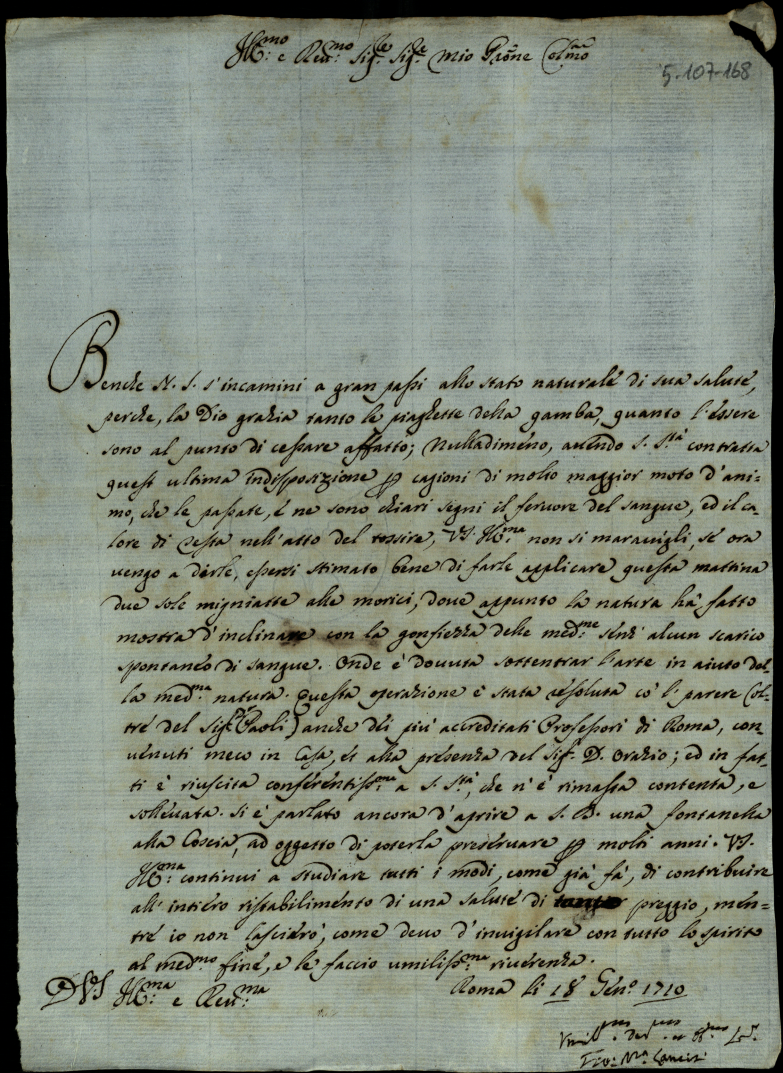 Ill:mo e Reu:mo Sig:re Sig:re mio Prōne Colmo
5-107-168
Benche N. S. s'incamini a gran passi allo stato naturale di sua salute,
perche, la Dio grazia tanto le piaghette della gamba, quanto l'essere
sono al punto di cessare affatto; Nulladimeno, auendo S. Stà contratta
quest ultima indisposizione p cagioni di molto maggior moto d'ani=
mo, che le passate, é ne sono chiari segni il feruore del sangue, ed il ca=
lore di testa nell'atto del tossire, VS. Ill:ma non si marauigli, se ora
vengo a dirle, essersi stimato bene di farle applicare questa mattina
due sole migniatte alle morici, doue appunto la natura hà fatto
mostra d'inclinare con la gonfiezza delle med:me senz' alcun scarico
spontaneo di sangue. Onde è douuta sottentrar l'arte in aiuto del=
la med:ma natura. Questa operazione è stata resoluta co' l' parere (ol=
tre del Sig:r Dr Paoli) anche dei piu' accreditati Professori di Roma, con=
uenuti meco in Casa, et alla presenza del Sig:r D. Orazio; ed in fat=
ti è riuscita conferentiss:ma a S. Stà, che n'è rimasta contenta, e
solleuata. Si è parlato ancora d'aprire a S. B. una fontanella
alla Coscia, ad oggetto di poterla preseruare p molti anni. VS.
Ill:ma continui a studiare tutti i modi, come già fà, di contribuire
all' intiero ristabilimento di una salute di preggio, men=
tre io non lascierò, come deuo d'inuigilare con tutto lo spirito
al med:mo fine, e le faccio umiliss:ma riuerenza.
D VS Ill:ma e Reu:ma Roma li 18 Gen:o 1710
Gio: Ma Lancisi